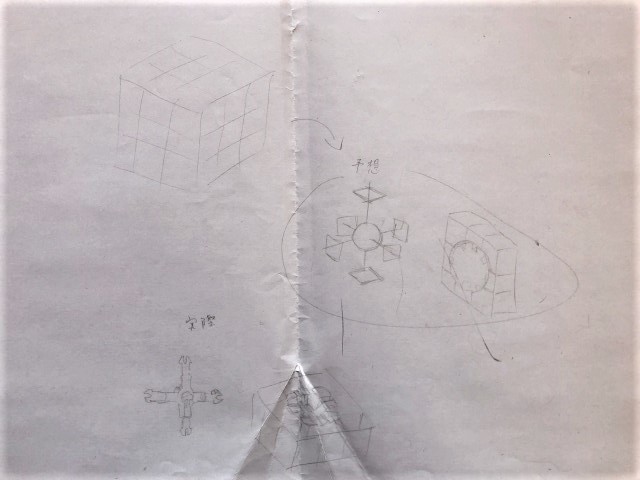 予想
実際